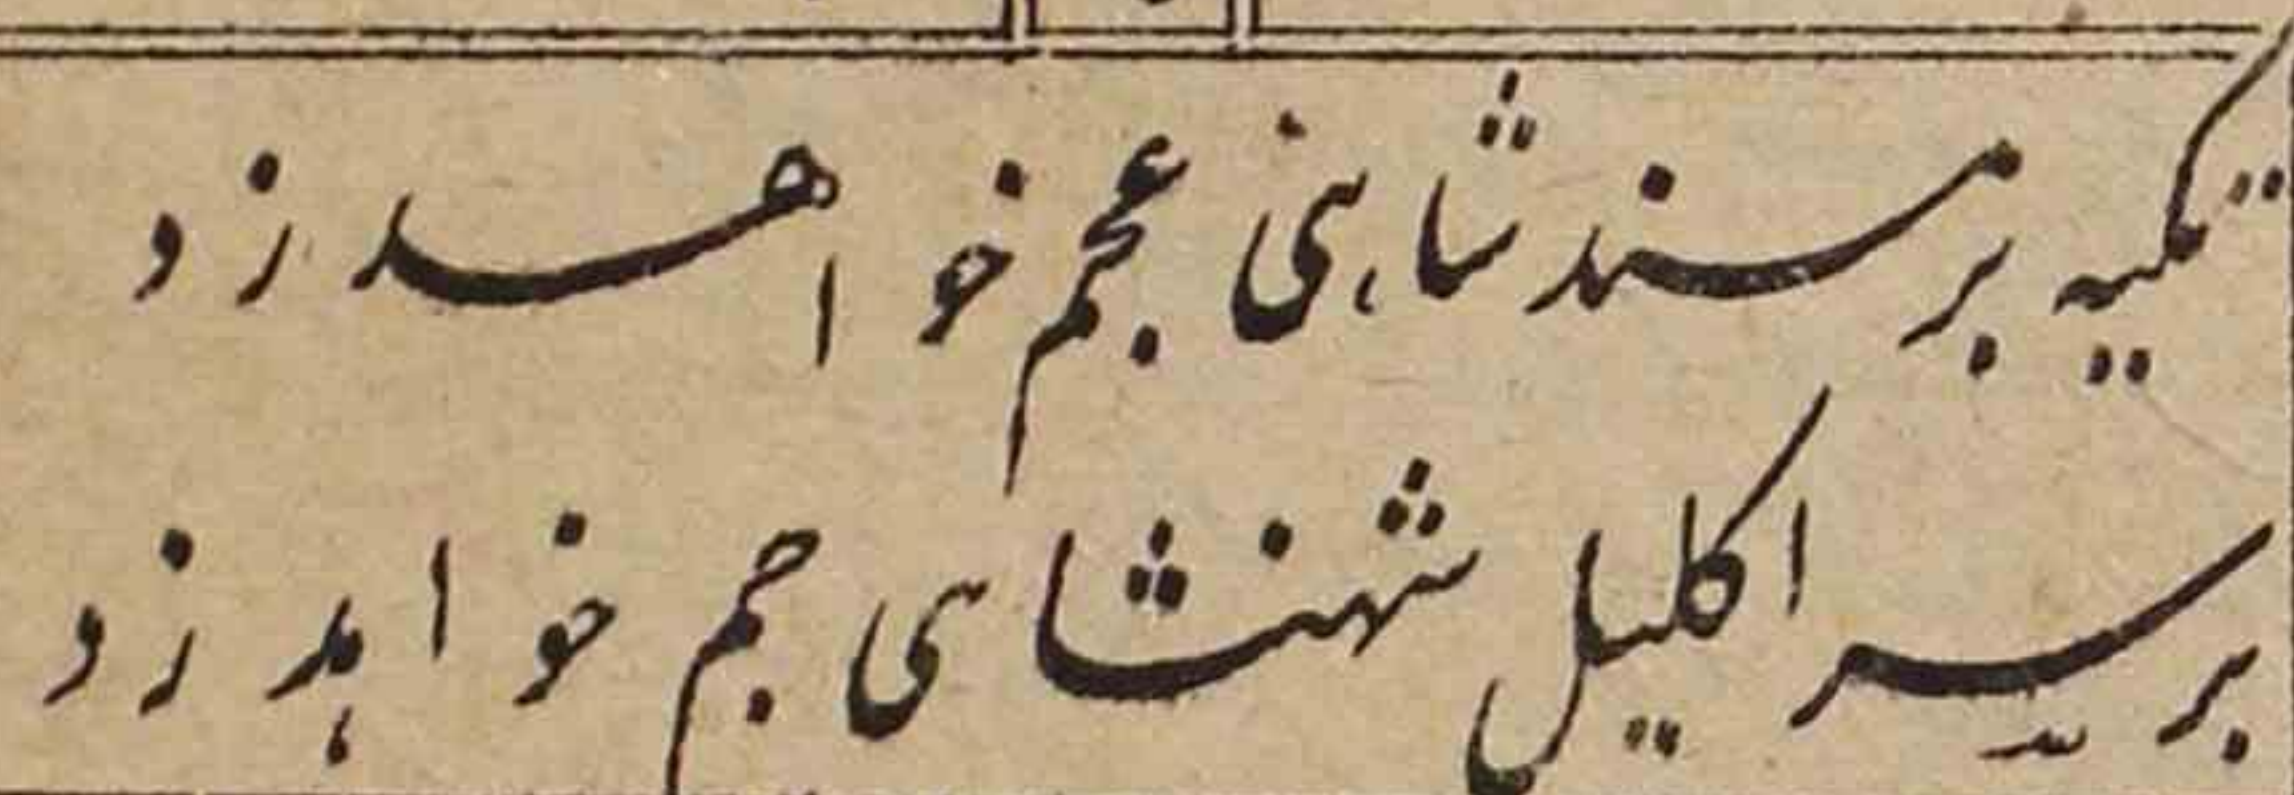 تکیه بر مسند شاهنی عجم خواهد زد
بر سر اکلیل شهنشاهی جم خواهد زد